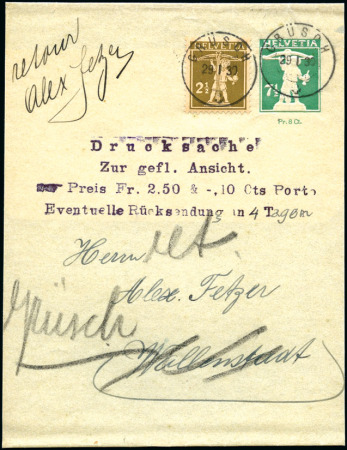 retour
Alex Fetzer
HELVETIA
2½
HELVETIA
7½
GRÜSCH
29.I.30
GRÜSCH
29.I.30
Pr. 8 Ct.
Drucksache
Zur gefl. Ansicht.
Preis Fr. 2.50 & -,10 Cts Porto
Eventuelle Rücksendung in 4 Tagen
ret.
Herrn
Alex. Fetzer
Grüsch
Wallenstadt